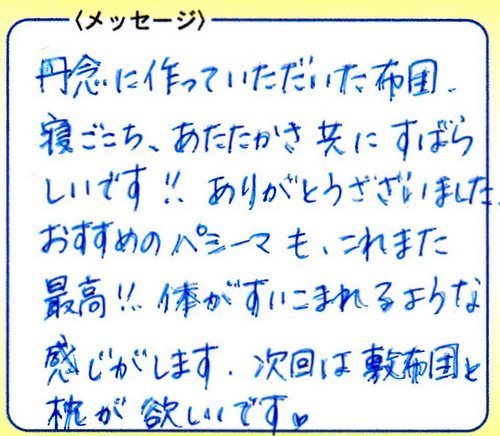 〈メッセージ〉
丹念に作っていただいた布団.
寝ごこち、あたたかさ共にすばら
しいです!! ありがとうございました.
おすすめのパシーマも、これまた
最高!! 体がすいこまれるような
感じがします. 次回は敷布団と
枕が欲しいです♥